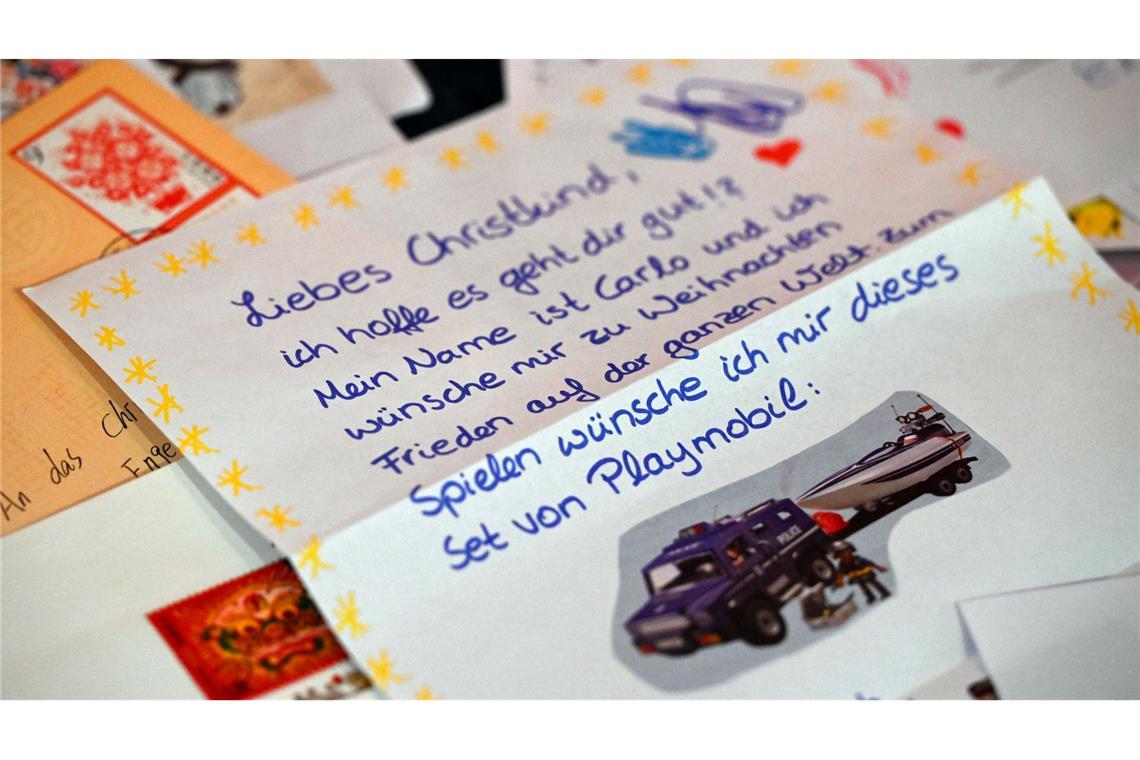 Liebes Christkind,
ich hoffe es geht dir gut!?
Mein Name ist Carlo und ich
wünsche mir zu Weihnachten
Frieden auf der ganzen Welt. Zum
Spielen wünsche ich mir dieses
Set von Playmobil:
POLICE
An das Chr
Enge